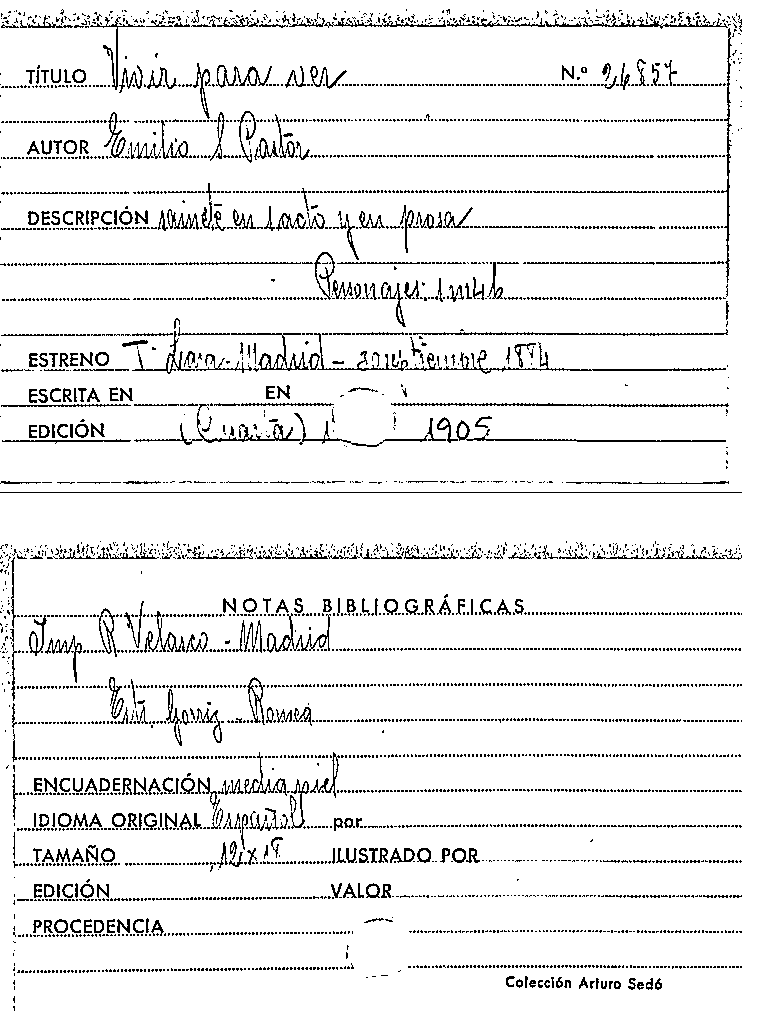 TÍTULO Vivir para ver N.º 26857
AUTOR Emilio S Pastor
DESCRIPCIÓN sainete en 1 acto y en prosa
Personajes: 1m4h
ESTRENO T. Lara-Madrid - septiembre 1884
ESCRITA EN EN
EDICIÓN (Cuarta) 1905
NOTAS BIBLIOGRÁFICAS
Imp R Velasco - Madrid
Estr. Gorriz - Romea
ENCUADERNACIÓN media piel
IDIOMA ORIGINAL Español por
TAMAÑO 12x18 ILUSTRADO POR
EDICIÓN VALOR
PROCEDENCIA
Colección Arturo Sedó